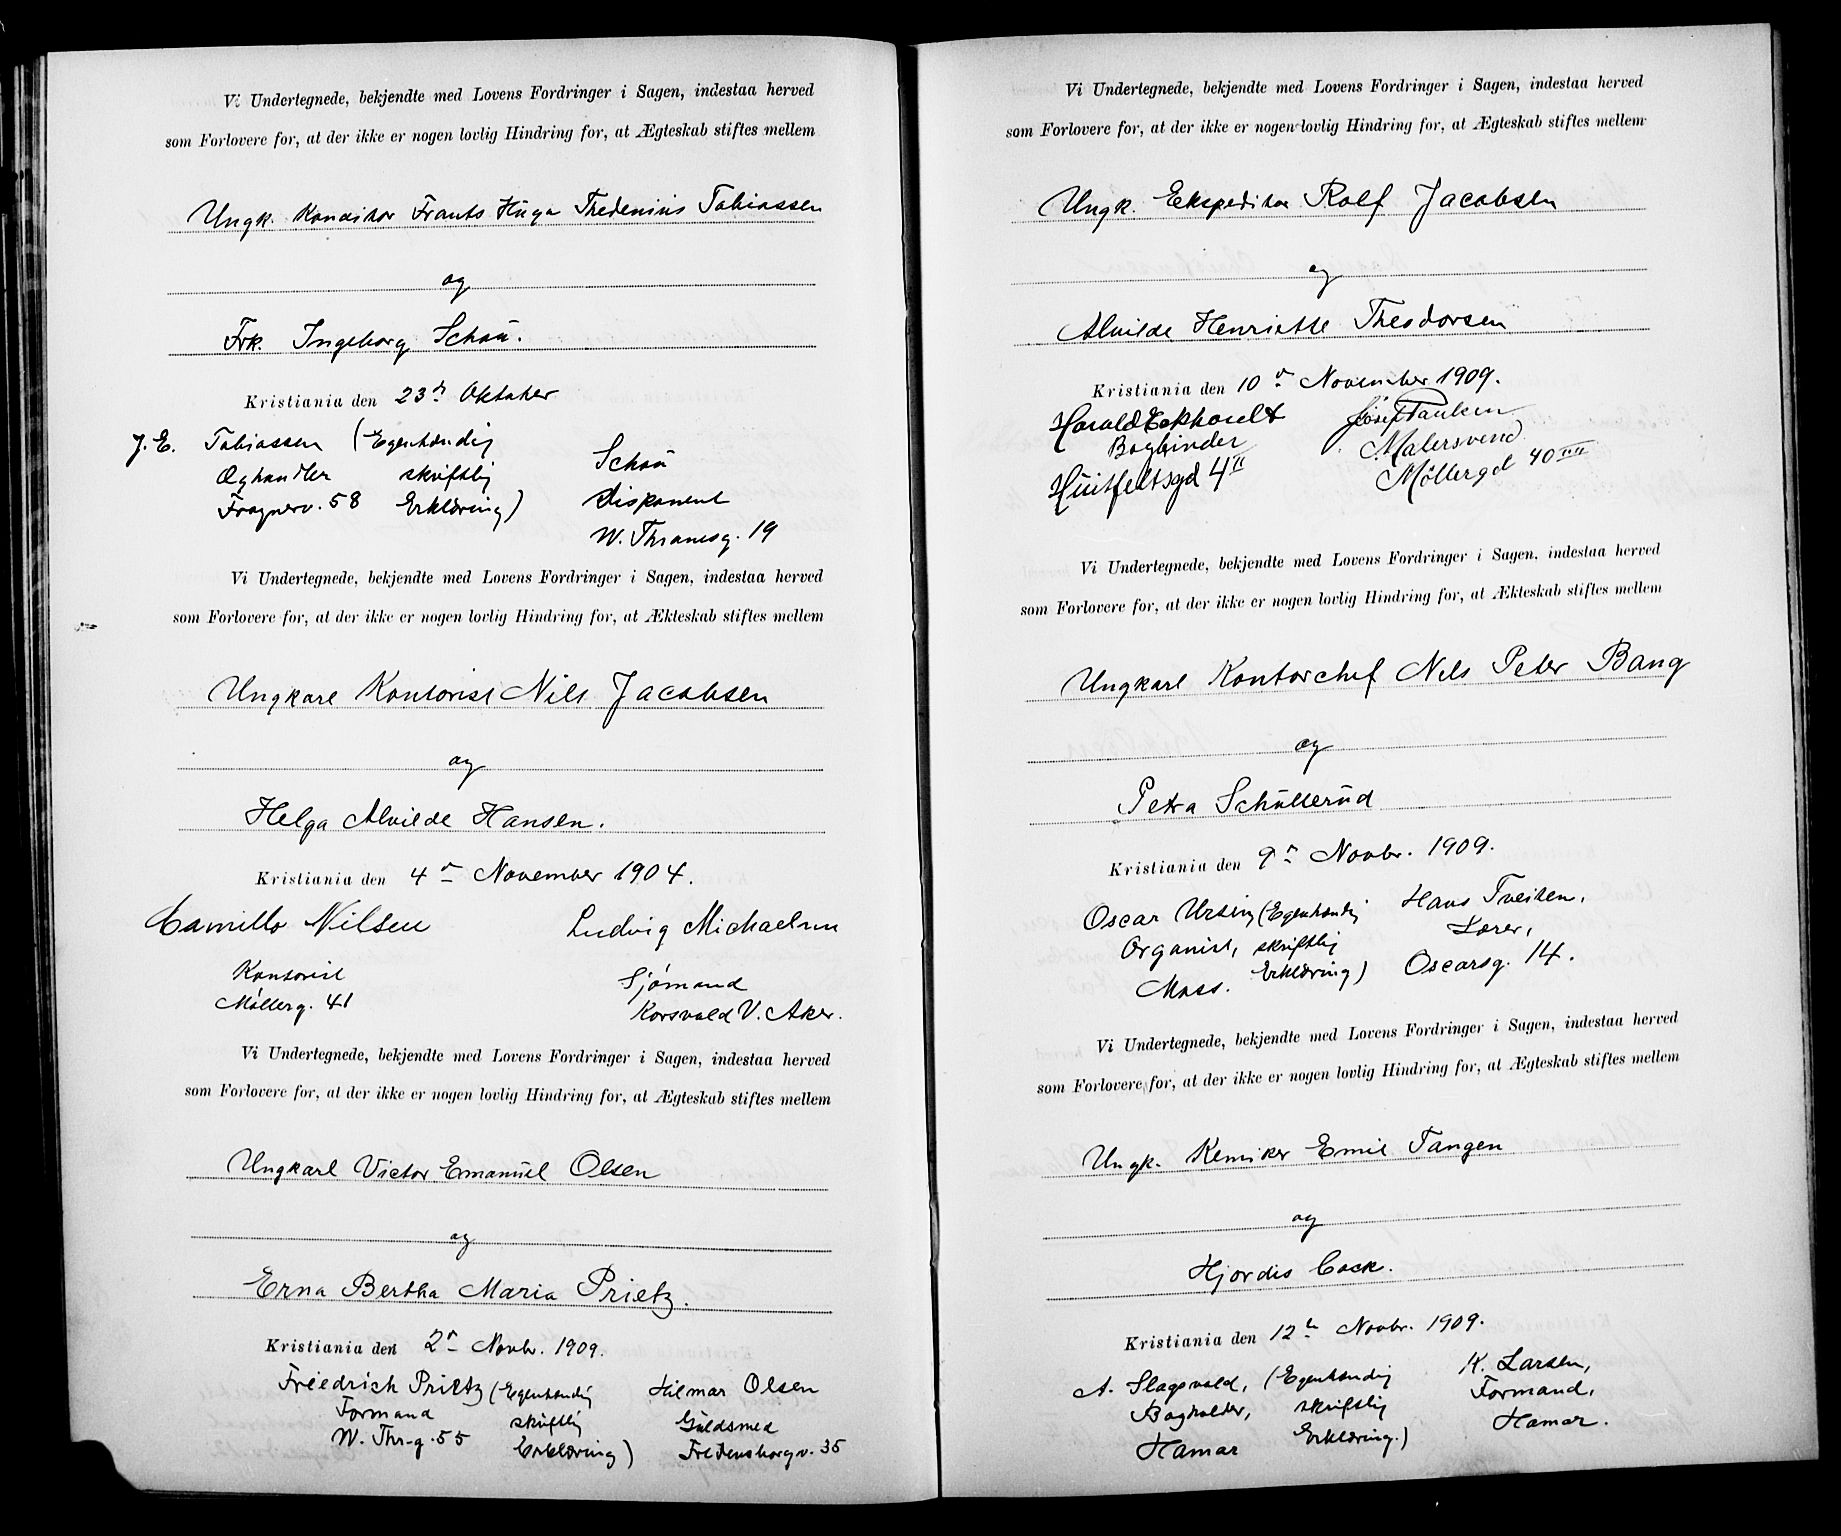 Vi Undertegnede, bekjendte med Lovens Fordringer i Sagen, indestaa herved
som Forlovere for, at der ikke er nogen lovlig Hindring for, at Ægteskab stiftes mellem
Ungk. Konditor Frants Hugo Thedenius Tobiassen
og
Frk. Ingeborg Schou.
Kristiania den 23d Oktober
J. E. Tobiassen (Egenhændig Schou
Oghandler skriftlig Disponent
Frognerv. 58 Erklæring) W. Thranesg. 19
Vi Undertegnede, bekjendte med Lovens Fordringer i Sagen, indestaa herved
som Forlovere for, at der ikke er nogen lovlig Hindring for, at Ækteskab stiftes mellem
Ungkarl Kontorist Nils Jacobsen
og
Helga Alvilde Hansen.
Kristiania den 4d November 1904.
Camillo Nilsen Ludvig Michaelsen
Kontorist Sjømand
Møllerg. 41 Korsvold V. Aker.
Vi Undertegnede, bekjendte med Lovens Fordringer i Sagen, indestaa herved
som Forlovere for, at der ikke er nogen lovlig Hindring for, at Ægteskab stiftes mellem
Ungkarl Victor Emanuel Olsen
og
Erna Bertha Maria Prietz.
Kristiania den 2d Novbr. 1909.
Friedrich Prietz (Egenhændig Hilmar Olsen
Formand skriftlig Guldsmed
W. Thr-g. 55 Erklæring) Fredensborgv. 35
Vi Undertegnede, bekjendte med Lovens Fordringer i Sagen, indestaa herved
som Forlovere for, at der ikke er nogen lovlig Hindring for, at Ægteskab stiftes mellem
Ungk. Ekspeditør Rolf Jacobsen
og
Alvilde Henriette Theodorsen
Kristiania den 10d November 1909.
Harald Eckhardt Josef Paulsen
Bogbinder Malersvend
Huitfeltsgd 4II Møllergd 40
Vi Undertegnede, bekjendte med Lovens Fordringer i Sagen, indestaa herved
som Forlovere for, at der ikke er nogen lovlig Hindring for, at Ækteskab stiftes mellem
Ungkarl Kontorchef Nils Peter Bang
og
Petra Schullerud
Kristiania den 9d Novbr. 1909.
Oscar Ursin (Egenhændig Hans Tveiten,
Organist, skriftlig Lærer,
Moss. Erklæring) Oscarsg. 14.
Vi Undertegnede, bekjendte med Lovens Fordringer i Sagen, indestaa herved
som Forlovere for, at der ikke er nogen lovlig Hindring for, at Ægteskab stiftes mellem
Ungk. Kemiker Emil Tangen
og
Hjordis Cock.
Kristiania den 12te Novbr. 1909.
A. Slagsvold, (Egenhændig K. Larsen,
Bogholder, skriftlig Formand,
Hamar Erklæring.) Hamar.